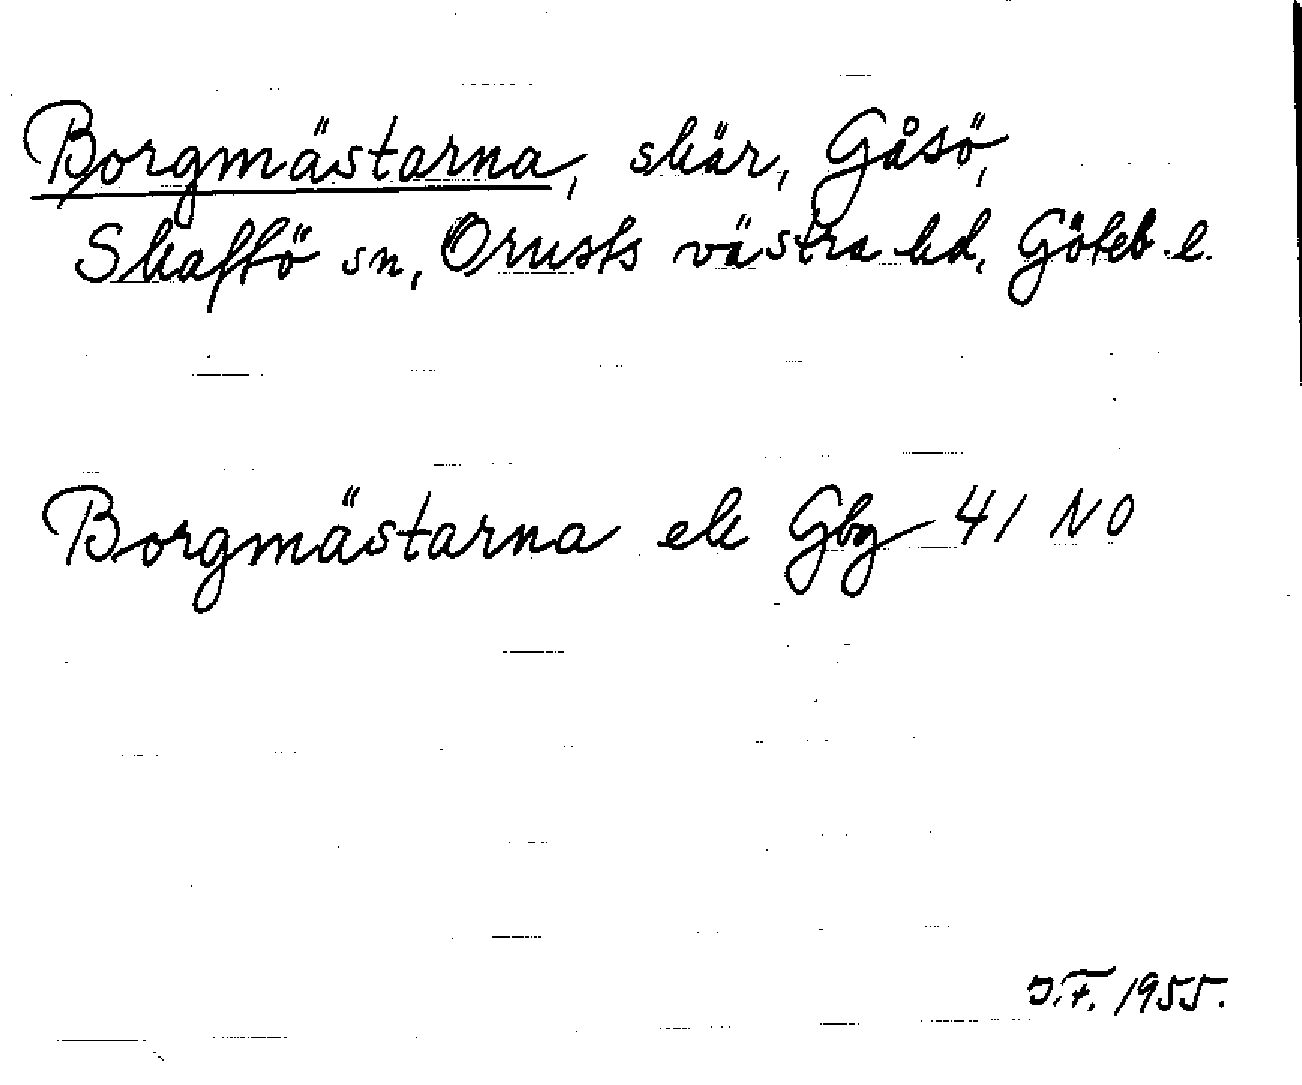 Borgmästarna, skär, Gåsö,
Skaftö sn, Orusts västra hd, Göteb. l.
Borgmästarna ek Gbg 41 NO
J.F. 1955.